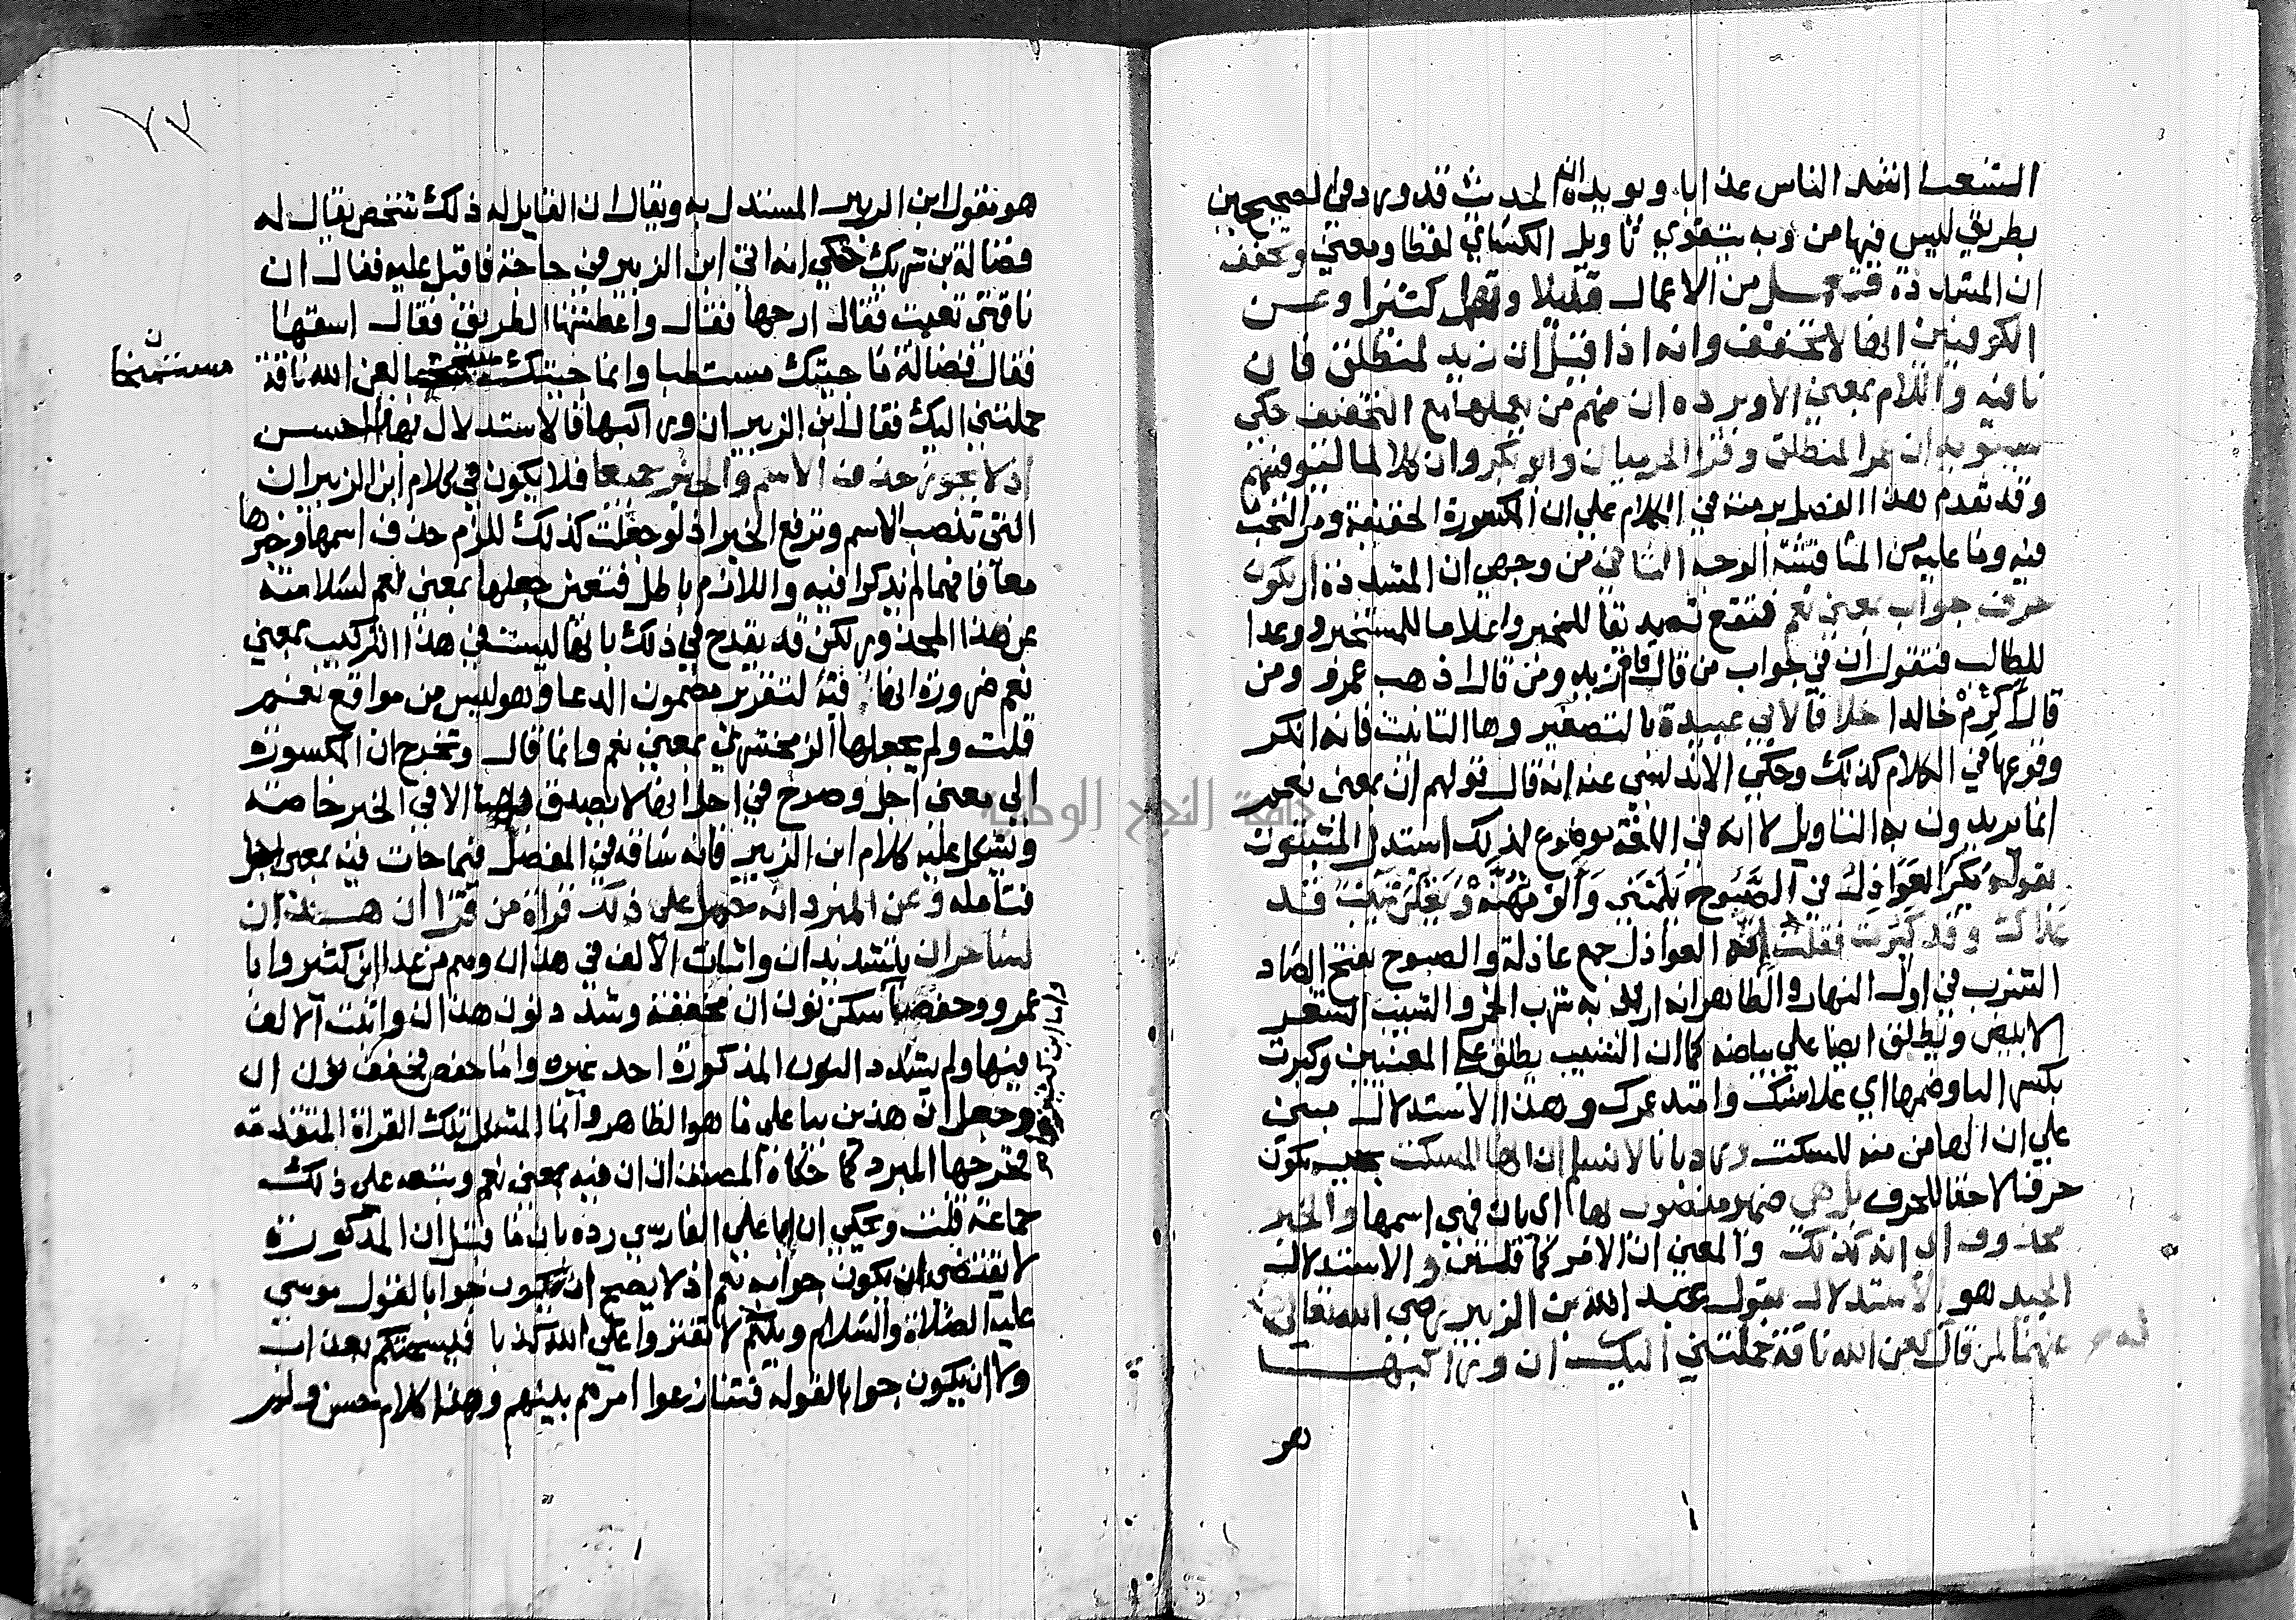 اشد الناس عذابا ويويده ان الحديث قد ورد في الصحيحين
بطريق ليس فيها من وبه يتقوي تاويل الكسائي لفظا ومعني وتخفف
ان المشددة فتعمل من الاعمال قليلا وتهمل كثيرا وعن
الكوفيين انها لا تخفف وانه اذا قيل ان زيد لمنطلق فان
نافيه واللام بمعني الا ويرده ان منهم من يعملها مع التخفيف حكي
سيبويه ان عمرا لمنطلق وقرا الحرميان وابو بكر وان كلا لما ليوفينهم
وقد تقدم هذا الفصل برمته في الكلام علي ان المكسورة الخفيفة ومر البحث
فيه وما عليه من المناقشة الوجه الثاني من وجهي ان المشددة ان يكون
حرف جواب بمعني نعم فتقع تصديقا للمخبر واعلاما للمستخبر ووعدا
للطالب فتقول ان في جواب من قال قام زيد ومن قال اذهب عمرو ومن
قال اكرم خالدا خلافا لابي عبيدة بالتصغير وها التانيث فانه انكر
وقوعها في الكلام كذلك وحكي الاندلسي عنه انه قال قولهم ان بمعني نعم
انما يريدون به التاويل لا انه في اللغة موضوع لذلك استدل المثبتون
بقوله بكر العواذل في الصبوح يلمنني والومهنه ويقلن شيب قد
علاك وقد كبرت فقلت انه العواذل جمع عاذلة والصبوح بفتح الصاد
الشرب في اول النهار والظاهر انه اراد به شرب الخمر والشيب الشعر
الابيض ويطلق ايضا علي بياضه كما ان الشيب يطلق علي المعنيين وكبرت
بكسر البا وضمها اي علا سنك وامتد عمرك وهذا الاستدلال مبني
علي ان الها من منه للسكت ورد بانا لا نسلم ان الها للسكت بحيث يكون
حرفا لاحقا للحرف بل هي ضمير منصوب بها اي بان فهي اسمها والخبر
محذوف اي انه كذلك والمعني ان الامر كما قلتن والاستدلال
الجيد هو الاستدلال بقول عبد الله بن الزبير رضي الله تعالي
عنهما لمن قال لعن الله ناقة حملتني اليك ان وراكبها
هو
٧٧
هو بقول ابن الزبير المستدل به ويقال ان القايل له ذلك شخص يقال له
فضالة بن شريك حكي انه اتي ابن الزبير في حاجة فاقبل عليه فقال ان
ناقتي تعبت فقال ارحها فقال واعطشها الطريق فقال اسقها
فقال فضالة ما جيتك مستطبا وانما جيتك لعن الله ناقة
مستمنحا
حملتني اليك فقال ابن الزبير ان وراكبها فالاستدلال بهذا احسن
اذ لا يجوز حذف الاسم والخبر جميعا فلا يكون في كلام ابن الزبير ان
التي تنصب الاسم وترفع الخبر اذ لو جعلت كذلك للزم حذف اسمها وخبرها
معا فانهما لم يذكرا فيه واللازم باطل فتعين جعلها بمعني نعم لسلامته
عن هذا المحذور لكن قد يقدح في ذلك بانها ليست في هذا التركيب بمعني
نعم ضرورة انها فيه لتقرير مضمون الدعا وهو ليس من مواقع نعم
قلت ولم يجعلها الزمخشري بمعني نعم وانما قال وتخرج ان المكسورة
الي معني اجل وصرح في اجل انها لا يصدق بها الا في الخبر خاصة
ويشكل عليه كلام ابن الزبير فانه ساقه في المفصل فيما جات فيه بمعني اجل
فتامله وعن المبرد انه حمل علي ذلك قراة من قرا ان هذان
لساحران بتشديد ان واثبات الالف في هذان وهم من عدا ابن كثير وابا
عمرو وحفصا سكن نون ان مخففة وشدد نون هذان واثبت الالف
فيها ولم يشدد النون المذكورة احد غيره واما حفص فخفف نون ان
وجعل ان هذين بيا علي ما هو الظاهر واما المشكل تلك القراة المتقدمة
فخرجها المبرد كما حكاه المصنف ان ان فيه بمعني نعم وتبعه علي ذلك
جماعة قلت وحكي ان ابا علي الفارسي رده بان ما قبل ان المذكورة
لا يقتضي ان يكون جوابه نعم اذ لا يصح ان يكون جوابا لقول موسي
عليه الصلاة والسلام ويلكم لا تفتروا علي الله كذبا فيسحتكم بعذاب
ولا ان يكون جوابا لقوله فتنازعوا امرهم بينهم وهذا كلام حسن
جامعة النجاح الوطنية